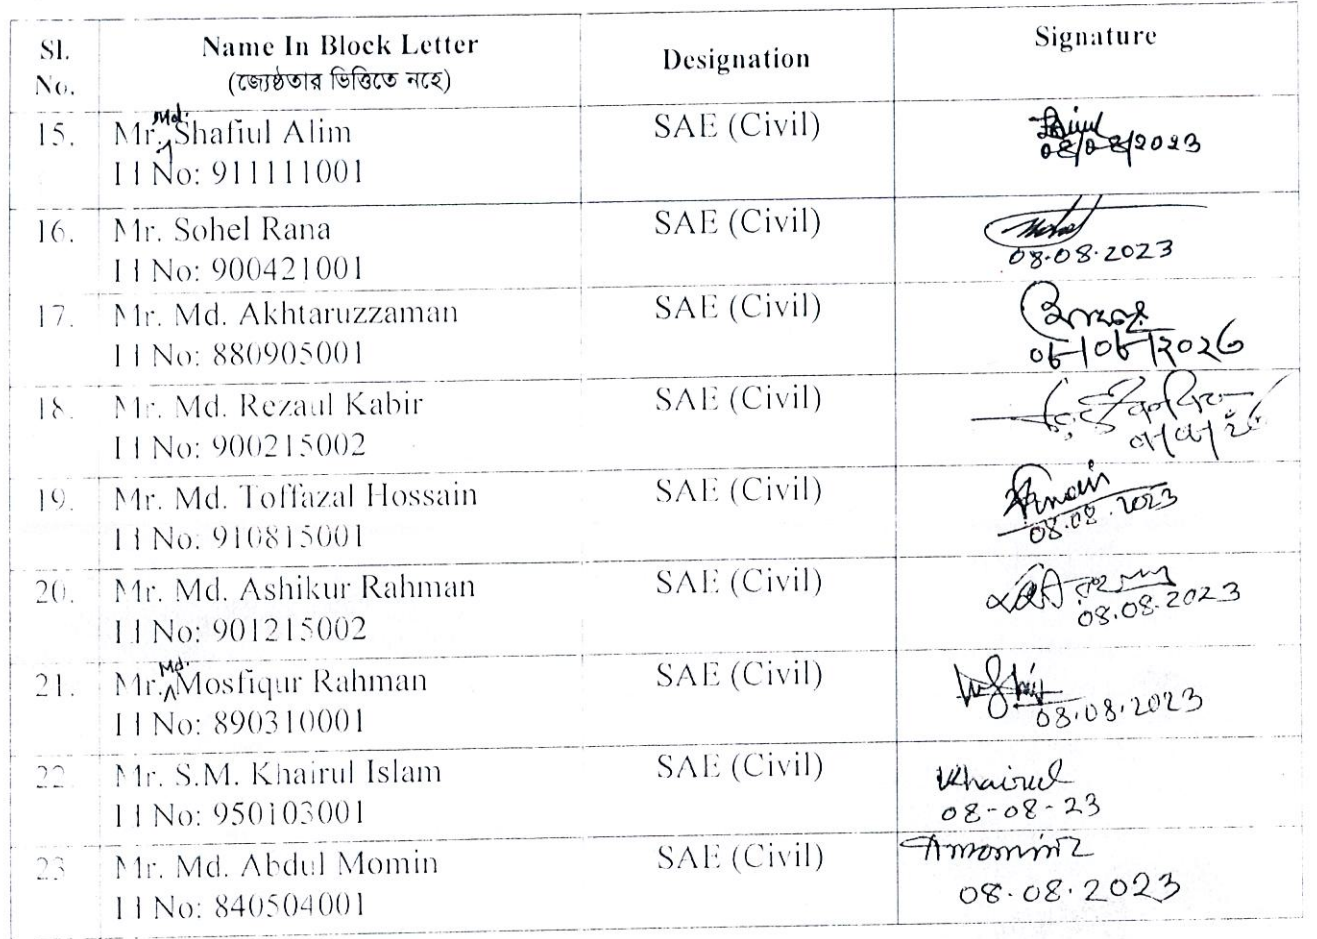 Sl. No.
Name In Block Letter
(জ্যেষ্ঠতার ভিত্তিতে নহে)
Designation
Signature
15.
Mr. Md. Shafiul Alim
I I No: 911111001
SAE (Civil)
08/08/2023
16.
Mr. Sohel Rana
I I No: 900421001
SAE (Civil)
08.08.2023
17.
Mr. Md. Akhtaruzzaman
I I No: 880905001
SAE (Civil)
18.
Mr. Md. Rezaul Kabir
I I No: 900215002
SAE (Civil)
19.
Mr. Md. Toffazal Hossain
I I No: 910815001
SAE (Civil)
08.08.2023
20.
Mr. Md. Ashikur Rahman
I I No: 901215002
SAE (Civil)
08.08.2023
21.
Mr. Md. Mosfiqur Rahman
I I No: 890310001
SAE (Civil)
08.08.2023
22
Mr. S.M. Khairul Islam
I I No: 950103001
SAE (Civil)
Khairul
08-08-23
23
Mr. Md. Abdul Momin
I I No: 840504001
SAE (Civil)
08.08.2023